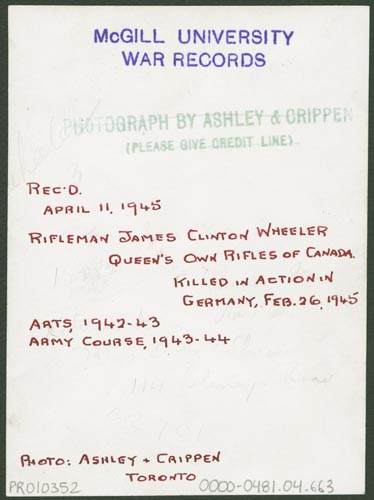 McGILL UNIVERSITY
WAR RECORDS
PHOTOGRAPH BY ASHLEY & CRIPPEN
(PLEASE GIVE CREDIT LINE)
REC'D.
APRIL 11, 1945
RIFLEMAN JAMES CLINTON WHEELER
QUEEN'S OWN RIFLES OF CANADA.
KILLED IN ACTION IN
GERMANY, FEB. 26, 1945
ARTS, 1942-43
ARMY COURSE, 1943-44
PHOTO: ASHLEY + CRIPPEN
TORONTO
PR010352
0000-0481.04.663